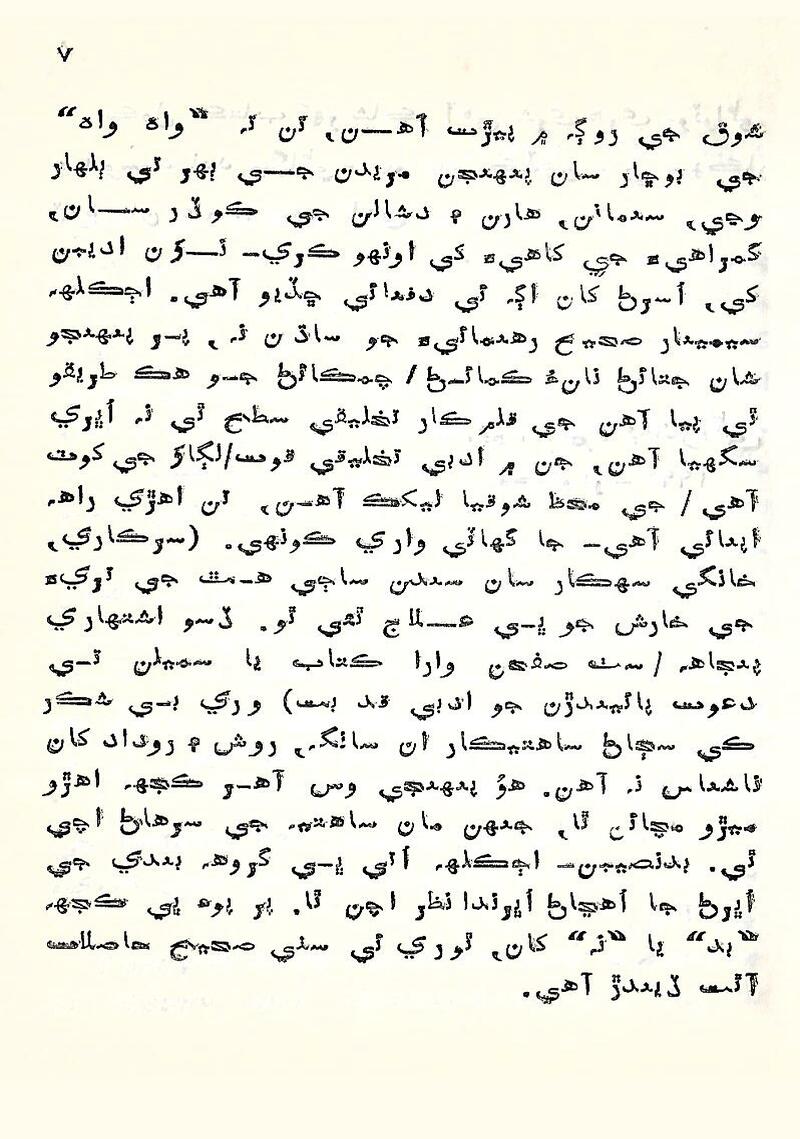 ٧
شوق جي روڳہ ۾ پيڙت آهــن، تن تہ “واھ واھ“
جي ٻوڇار سان پنهنجن مريدن جــي ٻهر تي ٻلهار
وڃي، سنمانن، هارن ۽ دشالن جي ڪوڏر ســان،
گمراهيءَ جي کاهيءَ کي اونهو ڪري۔ نــون اديبن
کي، اُسرڻ کان اڳہ ئي دفنائي ڇڏيو آهي. اڄڪلهہ
سيمينار صحيح رهنمائيءَ جو ساڌن نہ، پـر پنهنجو
شان جتائڻ نانءُ ڪمائـڻ/ چمڪائڻ جـو هڪ طريقو
ٿي پيا آهن جي قلمڪار تخليقي سطح تي نہ اُڀري
سگهيا آهن، جن ۾ ادبي تخليقي قوت/لڳاؤ جي کوٽ
آهي/ جي محظ شوقيا ليکڪ آهـن، تن اهڙي راهہ
اپنائي آهي۔ جا گهاٽي واري ڪونهي. (سرڪاري،
خانگي سهڪار سان سندن ساڄي هـٿ جي تريءَ
جي خارش جو ڀـي عــلاج ٿئي ٿو. ڏسو اشتهاري
پنجاهہ/سٺ صفحن وارا ڪتاب يا سميلن تـي
دعوت پائيندڙن جو ادبي قد بت) وري بـي شڪر
ڪي سڄاڻ ساهتيڪار ان سانگہ، روش ۽ روداد کان
ناشناس نہ آهن. هوُ پنهنجي وس آهـر ڪجهہ اهڙو
ميڙو مچائن ٿا، جنهن مان ساهتيہ جي سرهاڻ اچي
ٿي. بدنصيبن۔ اڄڪلهہ اُتي ڀـي گروهہ بندي جي
اُڀرڻ جا اُهڃاڻ اُڀرندا نظر اچن ٿا. پر پوءِ ڀي ڪجهہ
“بد“ يا “نہ“ کان، ٿوري ئي سٺي صحيح حاصلات
آٿت ڏيندڙ آهي.